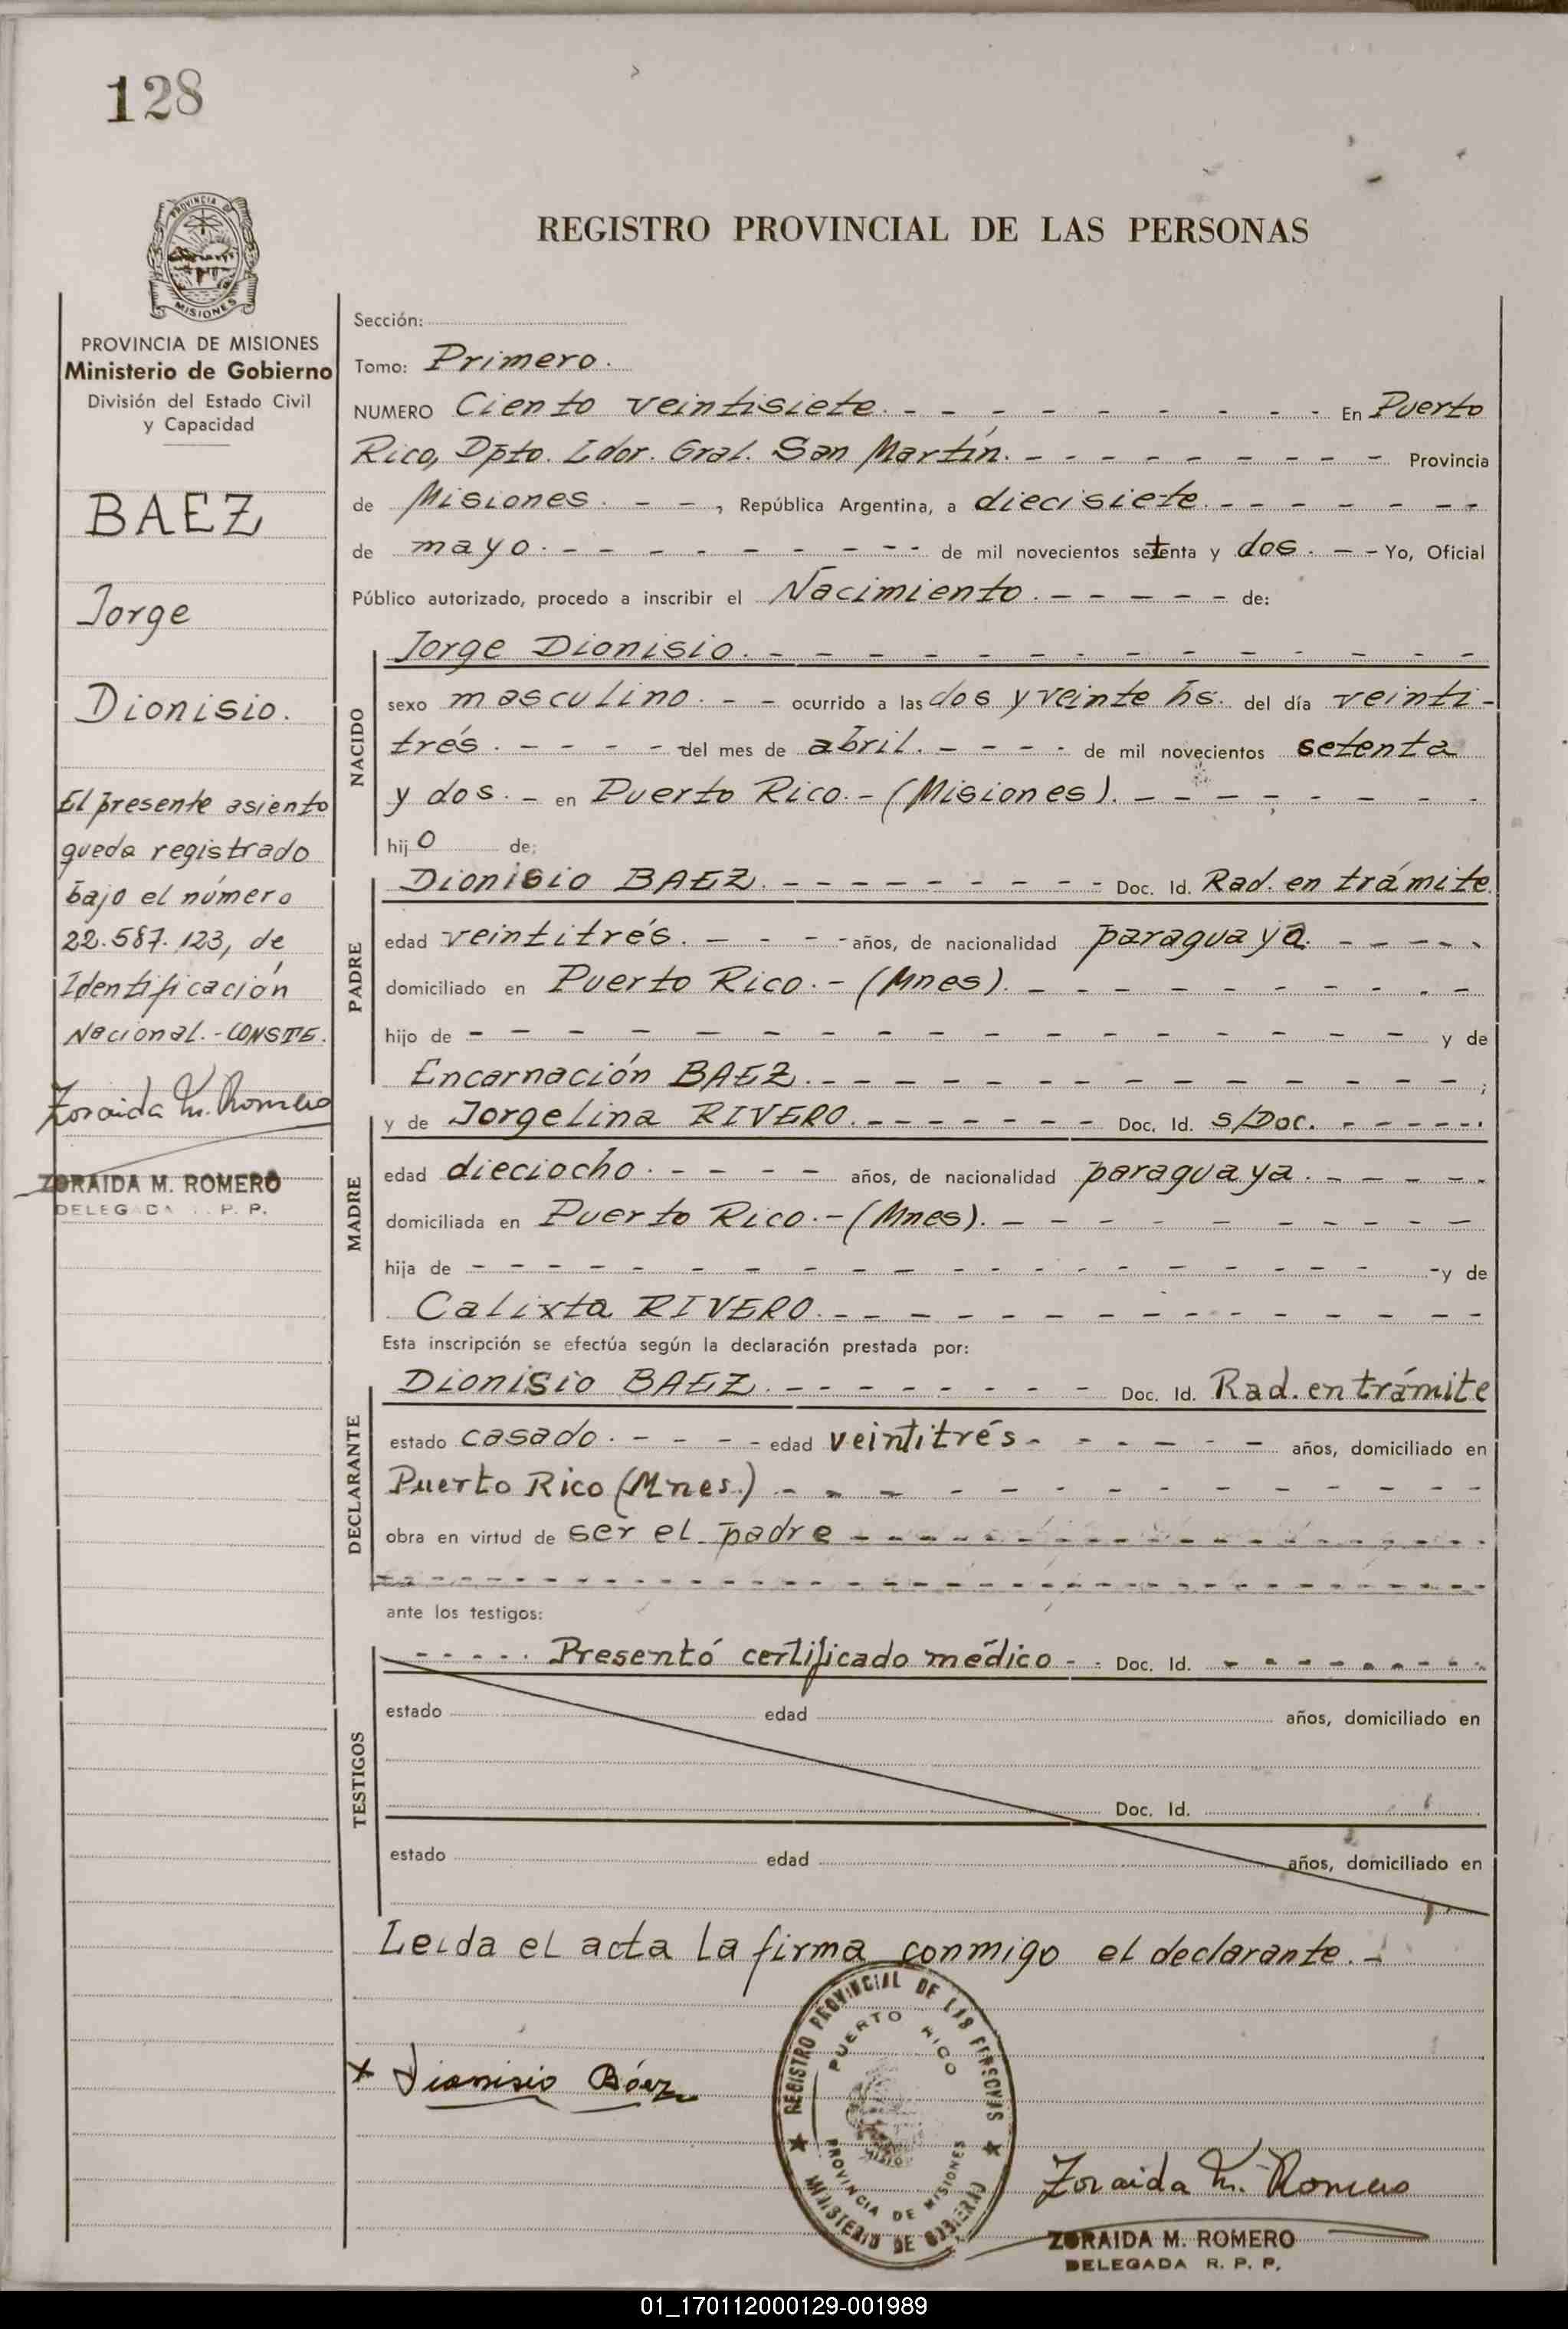 128
PROVINCIA DE
MISIONES
PROVINCIA DE MISIONES
Ministerio de Gobierno
División del Estado Civil
y Capacidad
BAEZ
Jorge
Dionisio.
El presente asiento
queda registrado
bajo el número
22.587.123, de
Identificación
Nacional.- CONSTE.
Zoraida M. Romero
ZORAIDA M. ROMERO
DELEGADA R. P. P.
REGISTRO PROVINCIAL DE LAS PERSONAS
Sección:
Tomo: Primero.
NUMERO Ciento veintisiete. - - - - - - - - - En Puerto
Rico, Dpto. Ldor. Gral. San Martín. - - - - - - - - - Provincia
de Misiones. - - , República Argentina, a diecisiete. - - - - - - -
de mayo. - - - - - - - - - de mil novecientos setenta y dos. - - Yo, Oficial
Público autorizado, procedo a inscribir el Nacimiento. - - - - - de:
NACIDO
Jorge Dionisio. - - - - - - - - - - - - - -
sexo masculino. - - ocurrido a las dos y veinte hs. del día veinti-
trés. - - - - del mes de abril. - - - - de mil novecientos setenta
y dos. - en Puerto Rico.- (Misiones). - - - - - - - - -
hijo de:
PADRE
Dionisio BAEZ. - - - - - - - - - Doc. Id. Rad. en trámite.
edad veintitrés. - - - - años, de nacionalidad paraguaya. - - - - -
domiciliado en Puerto Rico.- (Mnes). - - - - - - - - - -
hijo de - - - - - - - - - - - - - - - - - y de
Encarnación BAEZ. - - - - - - - - - - - - - ;
MADRE
y de Jorgelina RIVERO. - - - - - - - Doc. Id. s/Doc. - - - - -
edad dieciocho. - - - - - años, de nacionalidad paraguaya. - - - - -
domiciliada en Puerto Rico.- (Mnes). - - - - - - - - - -
hija de - - - - - - - - - - - - - - - - - - y de
Calixta RIVERO. - - - - - - - - - - - - - -
Esta inscripción se efectúa según la declaración prestada por:
DECLARANTE
Dionisio BAEZ. - - - - - - - - Doc. Id. Rad. en trámite
estado casado. - - - - edad veintitrés - - - - - - - años, domiciliado en
Puerto Rico (Mnes.) - - - - - - - - - - - - - -
obra en virtud de ser el padre - - - - - - - - - - - - - - - -
- - - - - - - - - - - - - - - - - - - - - - - - - - - -
ante los testigos:
TESTIGOS
- - - - - Presentó certificado médico - - Doc. Id. - - - - - - - - -
estado edad años, domiciliado en
Doc. Id.
estado edad años, domiciliado en
Leída el acta la firma conmigo el declarante. -
REGISTRO PROVINCIAL DE LAS PERSONAS
PUERTO RICO
PROVINCIA DE MISIONES
MINISTERIO DE GOBIERNO
x Dionisio Báez
Zoraida M. Romero
ZORAIDA M. ROMERO
DELEGADA R. P. P.
01_170112000129-001989